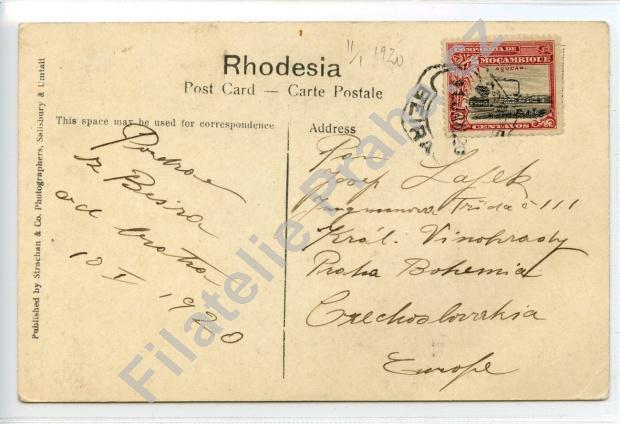 11/1 1920
Rhodesia
Post Card — Carte Postale
This space may be used for correspondence
Address
Published by Strachan & Co. Photographers, Salisbury & Umtali
COMPANHIA DE
MOÇAMBIQUE
AÇUCAR
CENTAVOS
BEIRA
Pozdrav
z Beira
od bratra
10 I 1920
Pan
Josef Lafek
Jungmanova Třída č 111
Král. Vinohrady
Praha Bohemia
Czechoslovakia
Europe
Filatelie Praha.cz